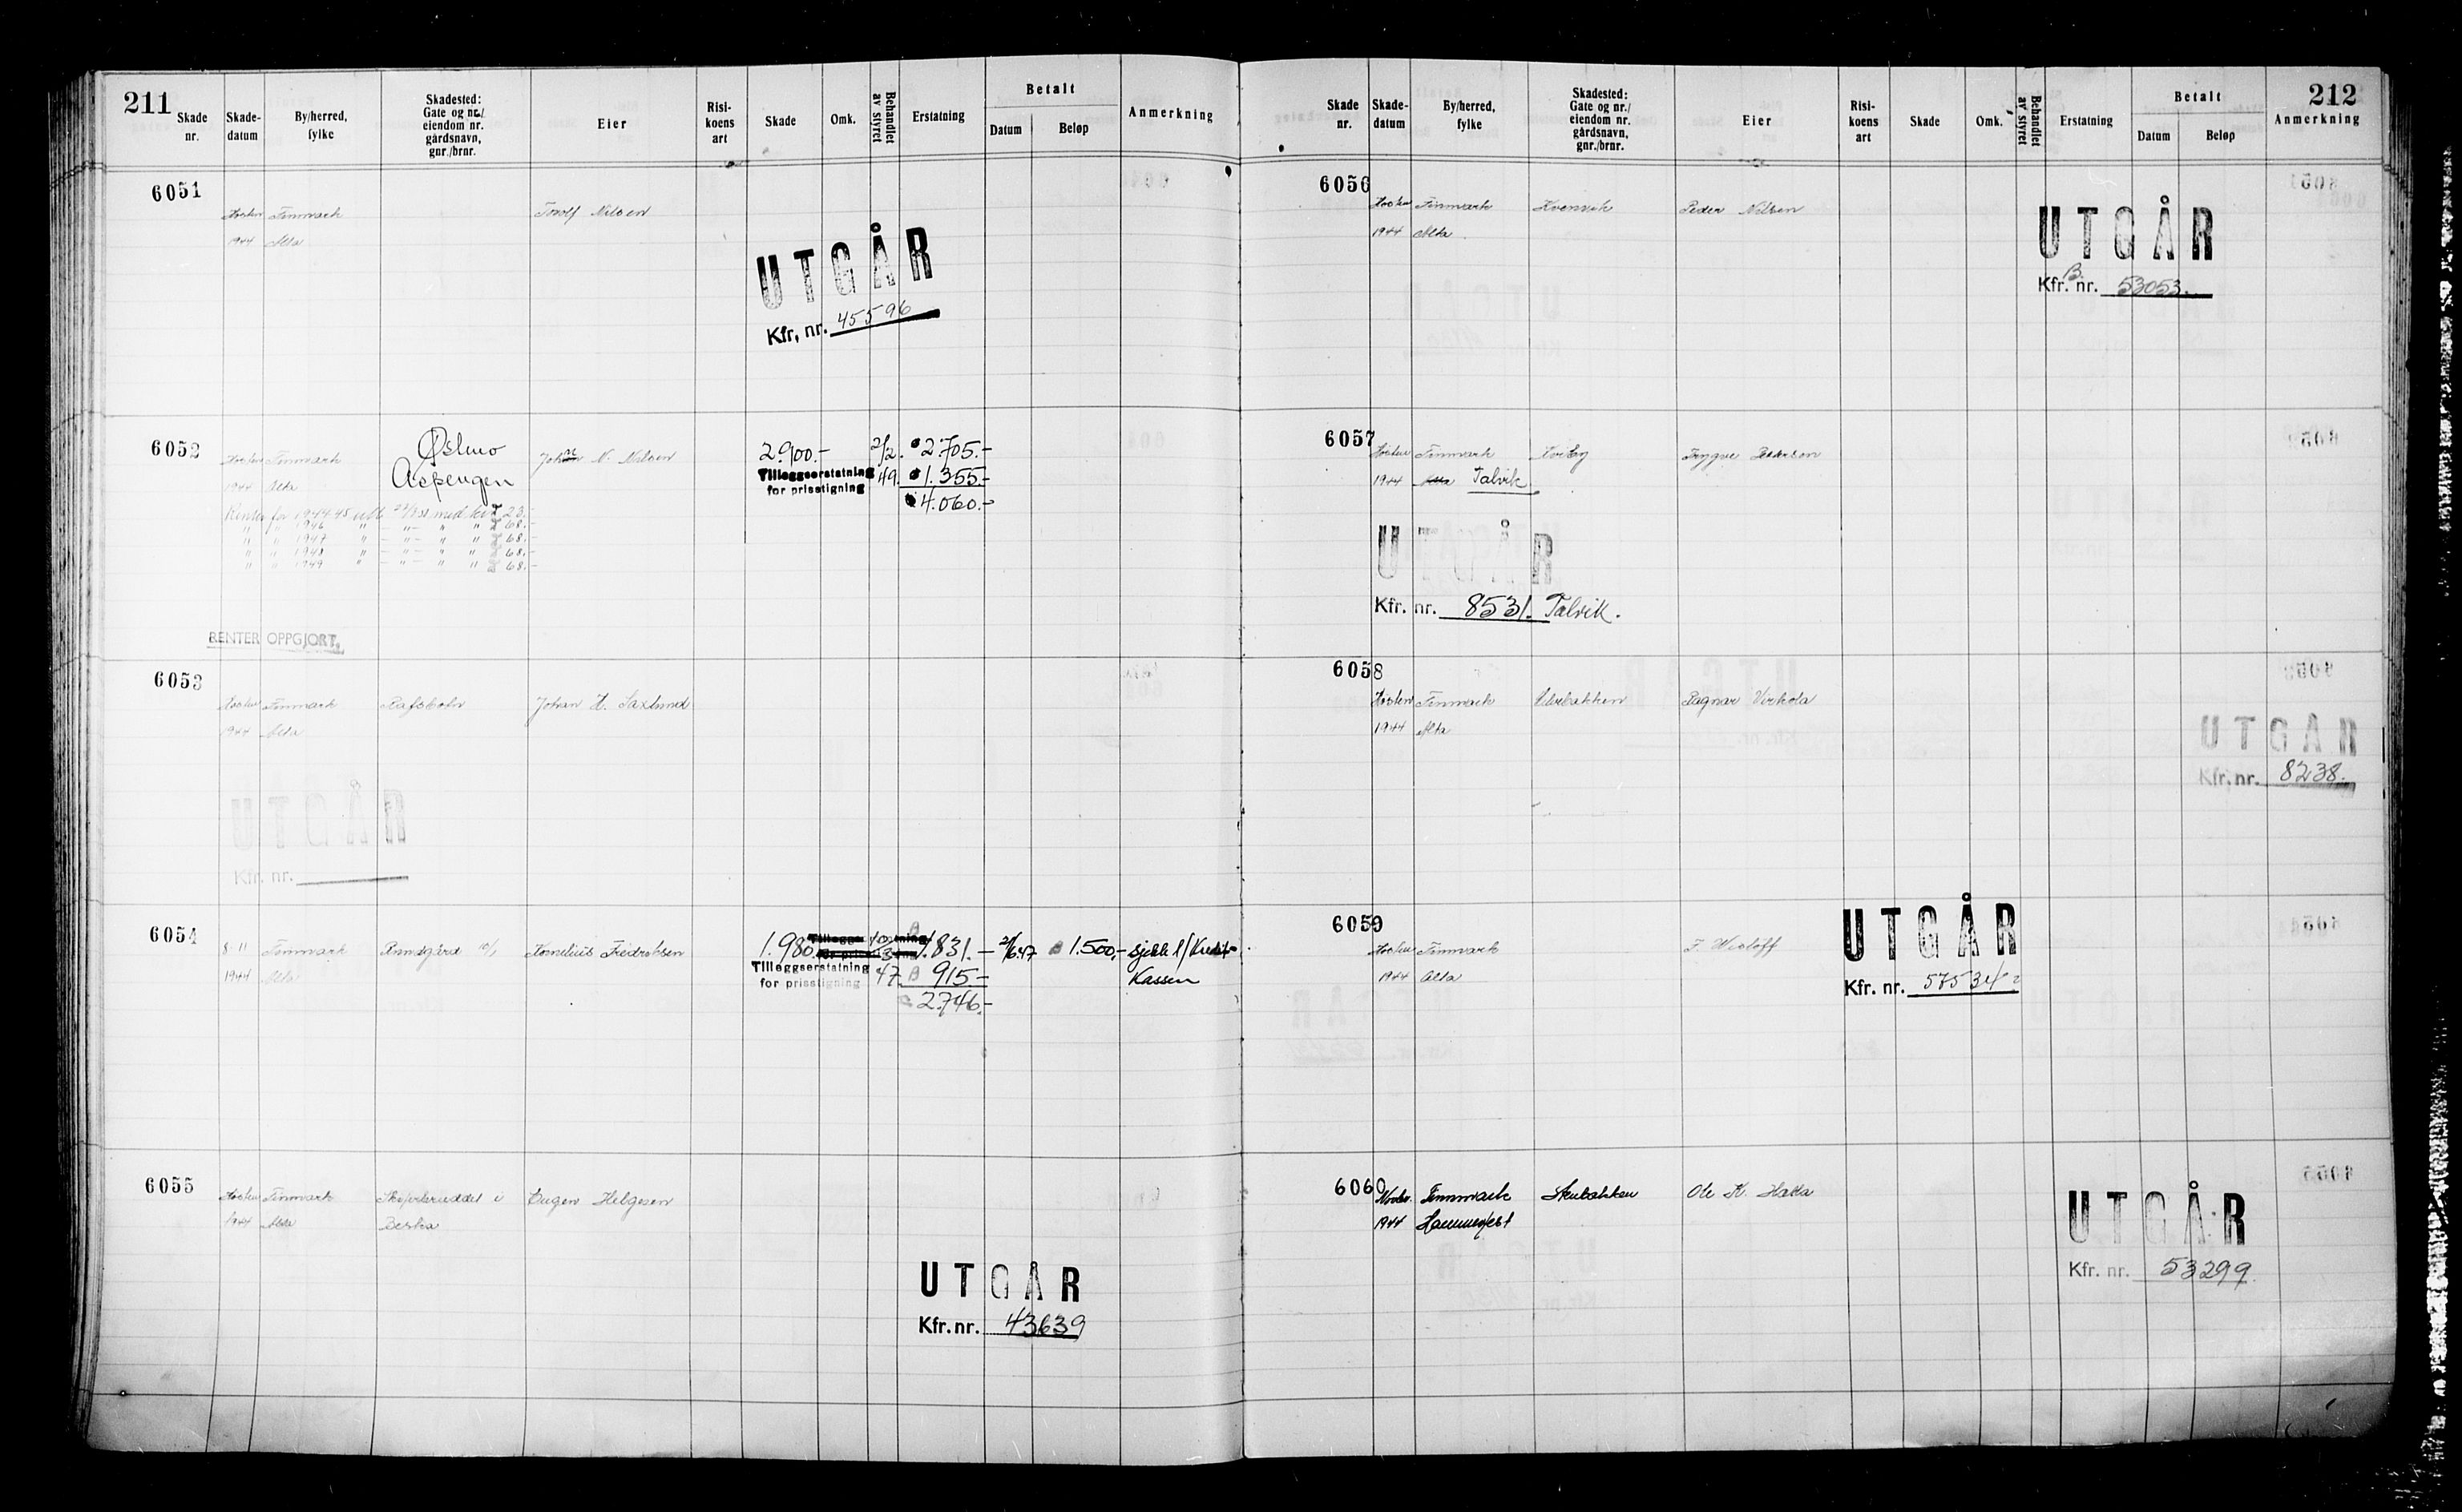 211
Skade nr.
Skade-datum
By/herred, fylke
Skadested: Gate og nr./ eiendom nr. gårdsnavn, gnr./brnr.
Eier
Risi-koens art
Skade
Omk.
Behandlet av styret
Erstatning
Betalt
Datum
Beløp
Anmerkning
6051
Høsten Finnmark
Torolf Nilsen
1944 Alta
UTGÅR
Kfr. nr. 45596
6052
Høsten Finnmark Øslmo N. Nilsen 2.900.- 2/2. 2.705.-
1944 Alta Aspengen Tilleggserstatning for prisstigning 49. 1.355.-
4.060.-
Renter for 1944-45 utb. med kr. 23.-
" " 1946 " - " - " " 68.-
" " 1947 " - " - " " 68.-
" " 1948 " - " - " " 68.-
" " 1949 " - " - " " 68.-
RENTER OPPGJORT.
6053
Høsten Finnmark Rafsbotn Johan H. Saxlund
1944 Alta
UTGÅR
Kfr. nr.
6054
8-11 Finnmark 10/1 Kornelius Fredriksen 1.980.- 1.831.- 2/6.47 1.500,- sjekk t/ Kreditt-
1944 Alta Tilleggserstatning for prisstigning 47. 915.- Kassen
2.746.-
6055
Høsten Finnmark i Eugen Helgesen
1944 Alta
UTGÅR
Kfr. nr. 43639
212
Skade nr.
Skade-datum
By/herred, fylke
Skadested: Gate og nr./ eiendom nr. gårdsnavn, gnr./brnr.
Eier
Risi-koens art
Skade
Omk.
Behandlet av styret
Erstatning
Betalt
Datum
Beløp
Anmerkning
6056
Høsten Finnmark Kvenvik Peder Nilsen
1944 Alta
UTGÅR
Kfr. nr. B. 53053.
6057
Høsten Finnmark Trygve Pedersen
1944 Alta Talvik
UTGÅR
Kfr. nr. 8531. Talvik.
6058
Høsten Finnmark Elvebakken Ragnar Virkola
1944 Alta
UTGÅR
Kfr. nr. 8238.
6059
Høsten Finnmark F. Wisløff
1944 Alta
UTGÅR
Kfr. nr. 57534
6060
Novbr. Finnmark Ole K. Hatta
1944 Hammerfest
UTGÅR
Kfr. nr. 53299.